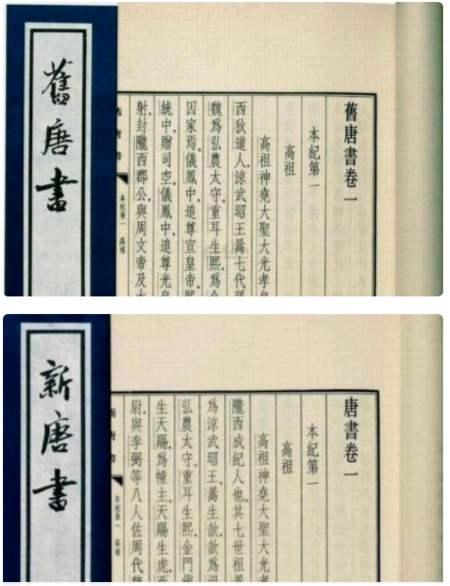 舊唐書卷一
本紀第一
高祖
高祖神堯大聖大光孝皇
西狄道人，涼武昭王暠七代
魏為弘農太守。重耳生熙，為金
因家焉。儀鳳中，追尊宣皇帝。熙
統中，贈司空。儀鳳中，追尊光皇
射，封隴西郡公，與周文帝及太
舊唐書
本紀第一 高祖
舊唐書
唐書卷一
本紀第一
高祖
高祖神堯大聖大光孝皇
隴西成紀人也。其七世祖暠
為涼武昭王。暠生歆，歆為
弘農太守。重耳生熙，金門
生天賜，為幢主。天賜生虎，西
尉，與李弼等八人佐周代魏
本紀第一 高祖
新唐書